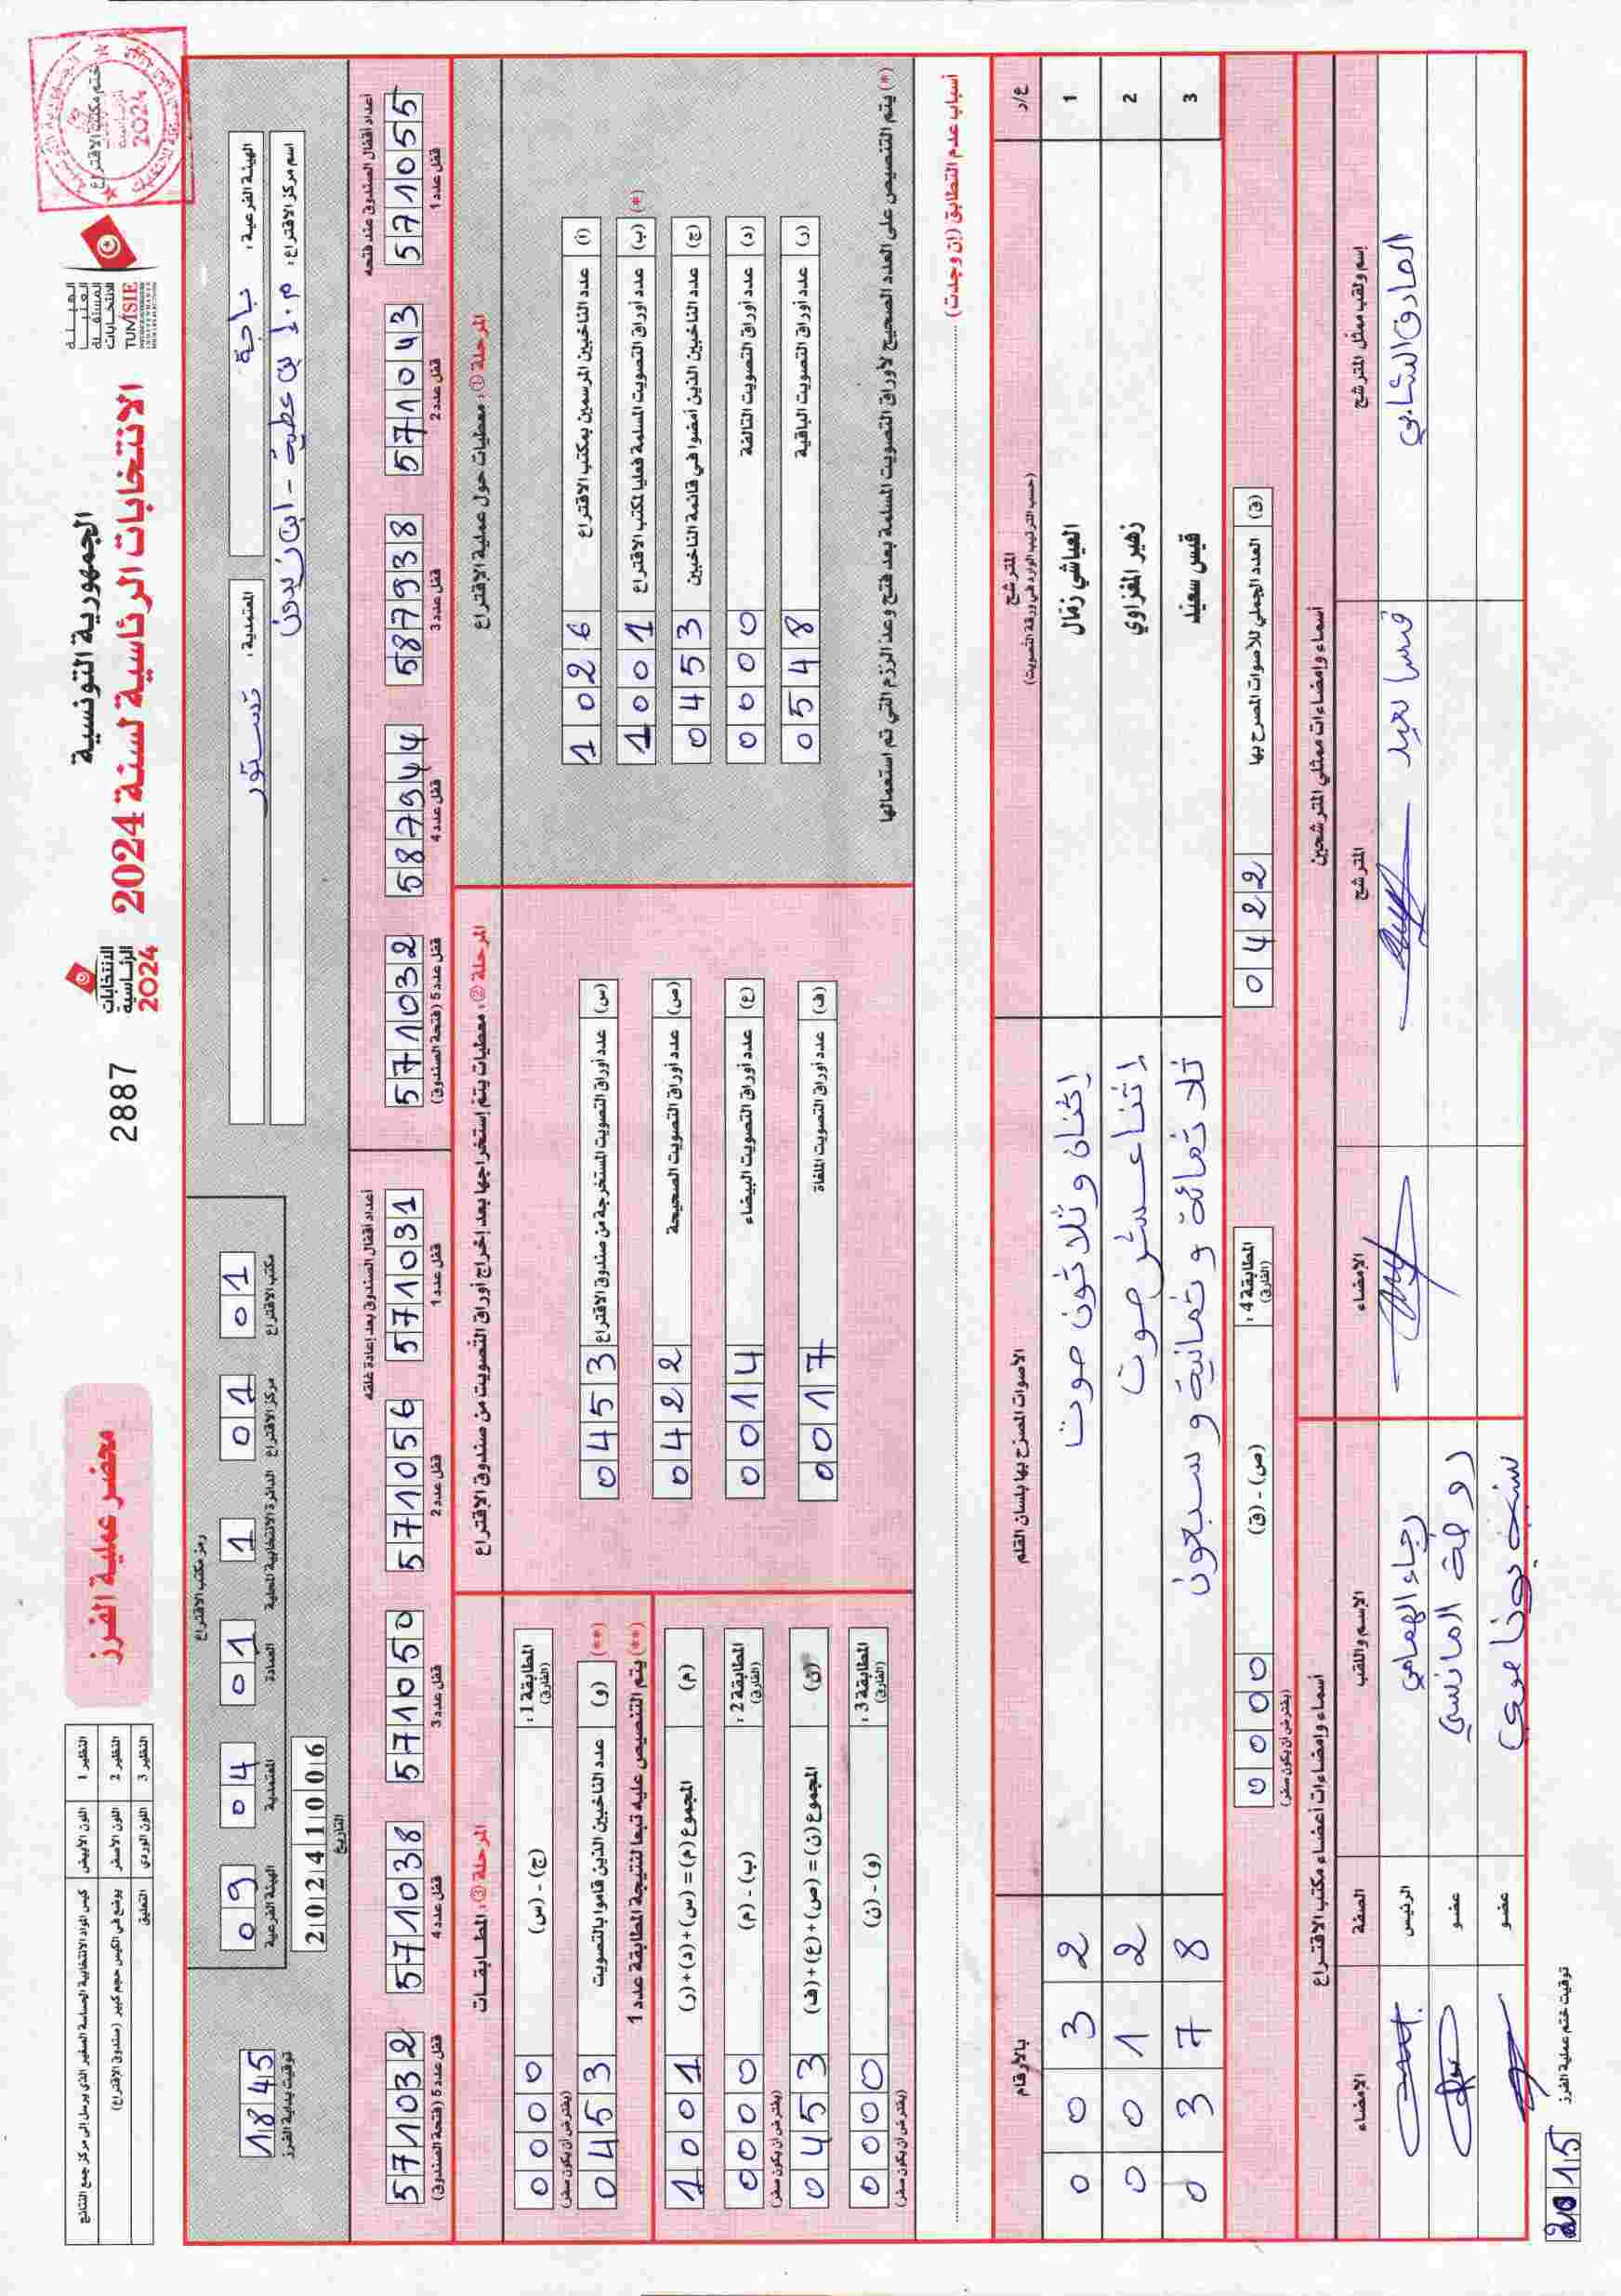 الجمهورية التونسية
الانتخابات الرئاسية لسنة 2024
الهيئة
العليا
المستقلة
للانتخابات
TUNISIE
ختم مكتب الاقتراع
الانتخابات
الرئاسية
2024
2887
محضر عملية الفرز
النظير 1 اللون الأبيض كيس المواد الانتخابية الحساسة الصغير الذي يرسل إلى مركز جمع النتائج
النظير 2 اللون الأصفر يوضع في الكيس حجم كبير (صندوق الاقتراع)
النظير 3 اللون الوردي التعليق
الهيئة الفرعية : باجة
المعتمدية : تستور
اسم مركز الاقتراع : م.إ بن عطية - ابن زيدون
رمز مكتب الاقتراع
09 04 01 1 01 01
الهيئة الفرعية المعتمدية العمادة الدائرة الانتخابية المحلية مركز الاقتراع مكتب الاقتراع
20241006
التاريخ
1845
توقيت بداية الفرز
أعداد أقفال الصندوق عند فتحه
571055 571043 587938 587944 571032
قفل عدد 1 قفل عدد 2 قفل عدد 3 قفل عدد 4 قفل عدد 5 (فتحة الصندوق)
أعداد أقفال الصندوق بعد إعادة غلقه
571031 571056 571050 571038 571032
قفل عدد 1 قفل عدد 2 قفل عدد 3 قفل عدد 4 قفل عدد 5 (فتحة الصندوق)
المرحلة ① : معطيات حول عملية الاقتراع
(أ) عدد الناخبين المرسمين بمكتب الاقتراع 1026
(*) (ب) عدد أوراق التصويت المسلمة فعليا لمكتب الاقتراع 1001
(ج) عدد الناخبين الذين أمضوا في قائمة الناخبين 0453
(د) عدد أوراق التصويت التالفة 0000
(ر) عدد أوراق التصويت الباقية 0548
(*) يتم التنصيص على العدد الصحيح لأوراق التصويت المسلمة بعد فتح وعد الرزم التي تم استعمالها
المرحلة ② : معطيات يتم إستخراجها بعد إخراج أوراق التصويت من صندوق الاقتراع
(س) عدد أوراق التصويت المستخرجة من صندوق الاقتراع 0453
(ص) عدد أوراق التصويت الصحيحة 0422
(ع) عدد أوراق التصويت البيضاء 0014
(ف) عدد أوراق التصويت الملغاة 0017
المرحلة ③ : المطابقات
المطابقة 1 : (الفارق) (ج) - (س) 0000
(يفترض أن يكون صفر)
(**) (و) عدد الناخبين الذين قاموا بالتصويت 0453
(**) يتم التنصيص عليه تبعا لنتيجة المطابقة عدد 1
(م) المجموع (م) = (س) + (د) + (ر) 1001
المطابقة 2 : (الفارق) (ب) - (م) 0000
(يفترض أن يكون صفر)
(ن) المجموع (ن) = (ص) + (ع) + (ف) 0453
المطابقة 3 : (الفارق) (و) - (ن) 0000
(يفترض أن يكون صفر)
أسباب عدم التطابق (إن وجدت)
ع/د المترشح (حسب الترتيب الوارد في ورقة التصويت) الأصوات المصرح بها بلسان القلم بالأرقام
1 العياشي زمال إثنان و ثلاثون صوت 0032
2 زهير المغزاوي إثنا عشر صوت 0012
3 قيس سعيد ثلاثمائة و ثمانية و سبعون 0378
(ق) العدد الجملي للأصوات المصرح بها 0422
المطابقة 4 : (الفارق) (ص) - (ق) 0000
(يفترض أن يكون صفر)
أسماء وإمضاءات ممثلي المترشحين
إسم ولقب ممثل المترشح المترشح الإمضاء
الصادق الشابي قيس سعيد
أسماء وإمضاءات أعضاء مكتب الاقتراع
الإسم واللقب الصفة الإمضاء
رجاء الهمامي الرئيس
روضة المانسي عضو
عضو
توقيت ختم عملية الفرز 2015